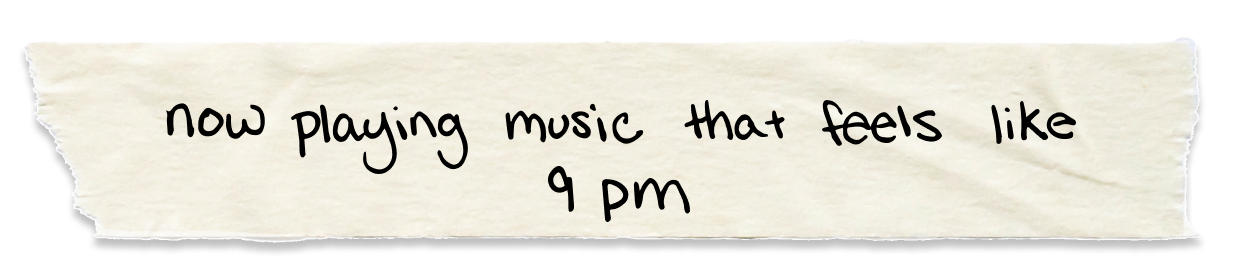 now playing music that feels like
9 pm